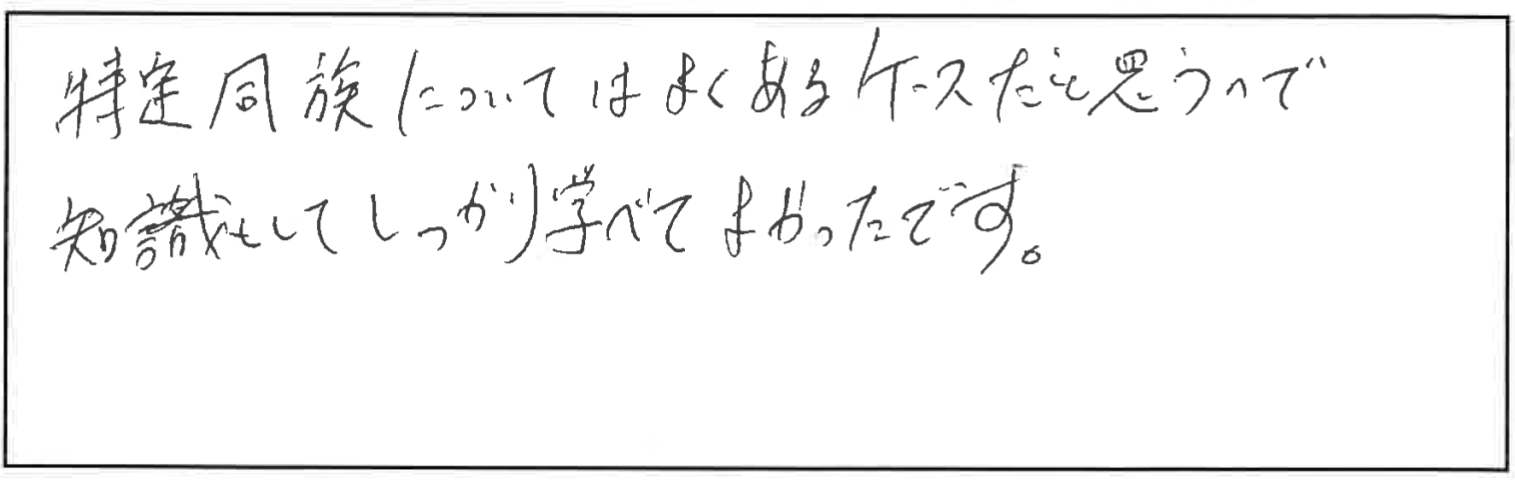 特定同族についてはよくあるケースだと思うので
知識としてしっかり学べてよかったです。